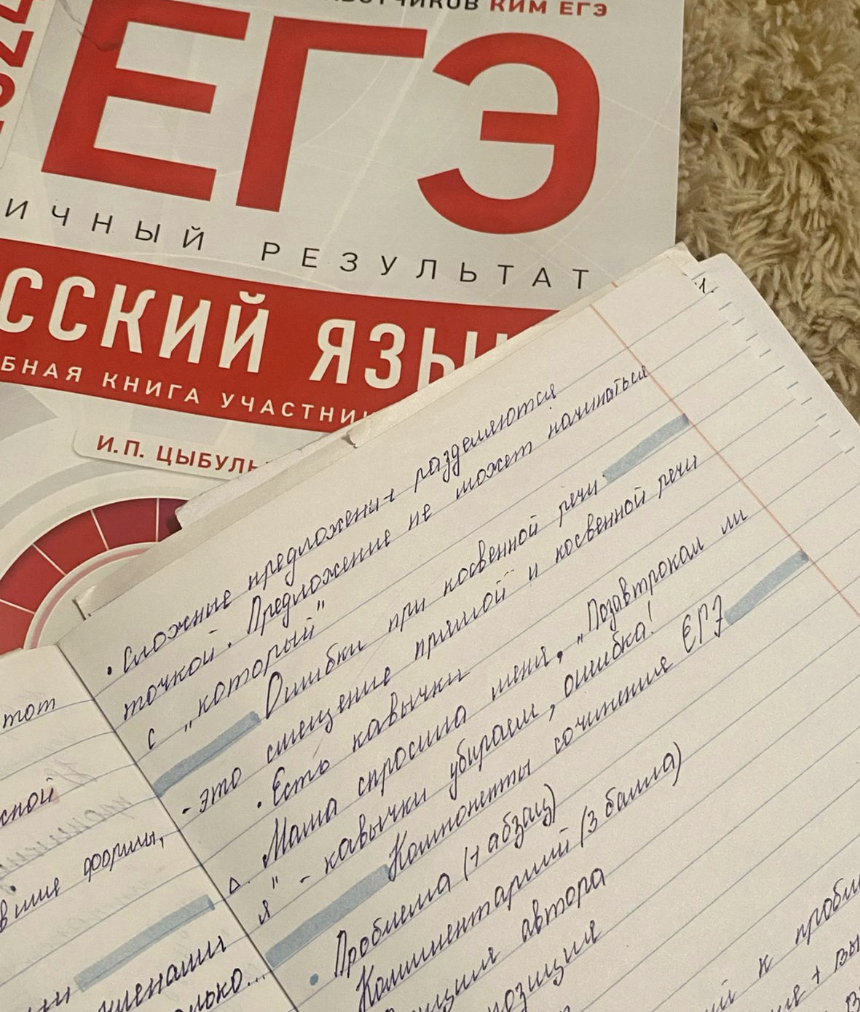 КИМ ЕГЭ
ЕГЭ
ИЧНЫЙ РЕЗУЛЬТАТ
ССКИЙ ЯЗЫ
БНАЯ КНИГА УЧАСТНИ
И.П. ЦЫБУЛЬ
• Сложные предложения разделяются
точкой. Предложение не может начинаться
с „который"
Ошибки при косвенной речи
- это смещение прямой и косвенной речи
• Есть кавычки
Δ Мама спросила меня, „Позавтракал ли
я" - кавычки убираем, ошибка!
Компоненты сочинение ЕГЭ
• Проблема (1 абзац)
Комментарий (3 балла)
автора
к пробле
тот
сной
вшие формы,
членами
олько...